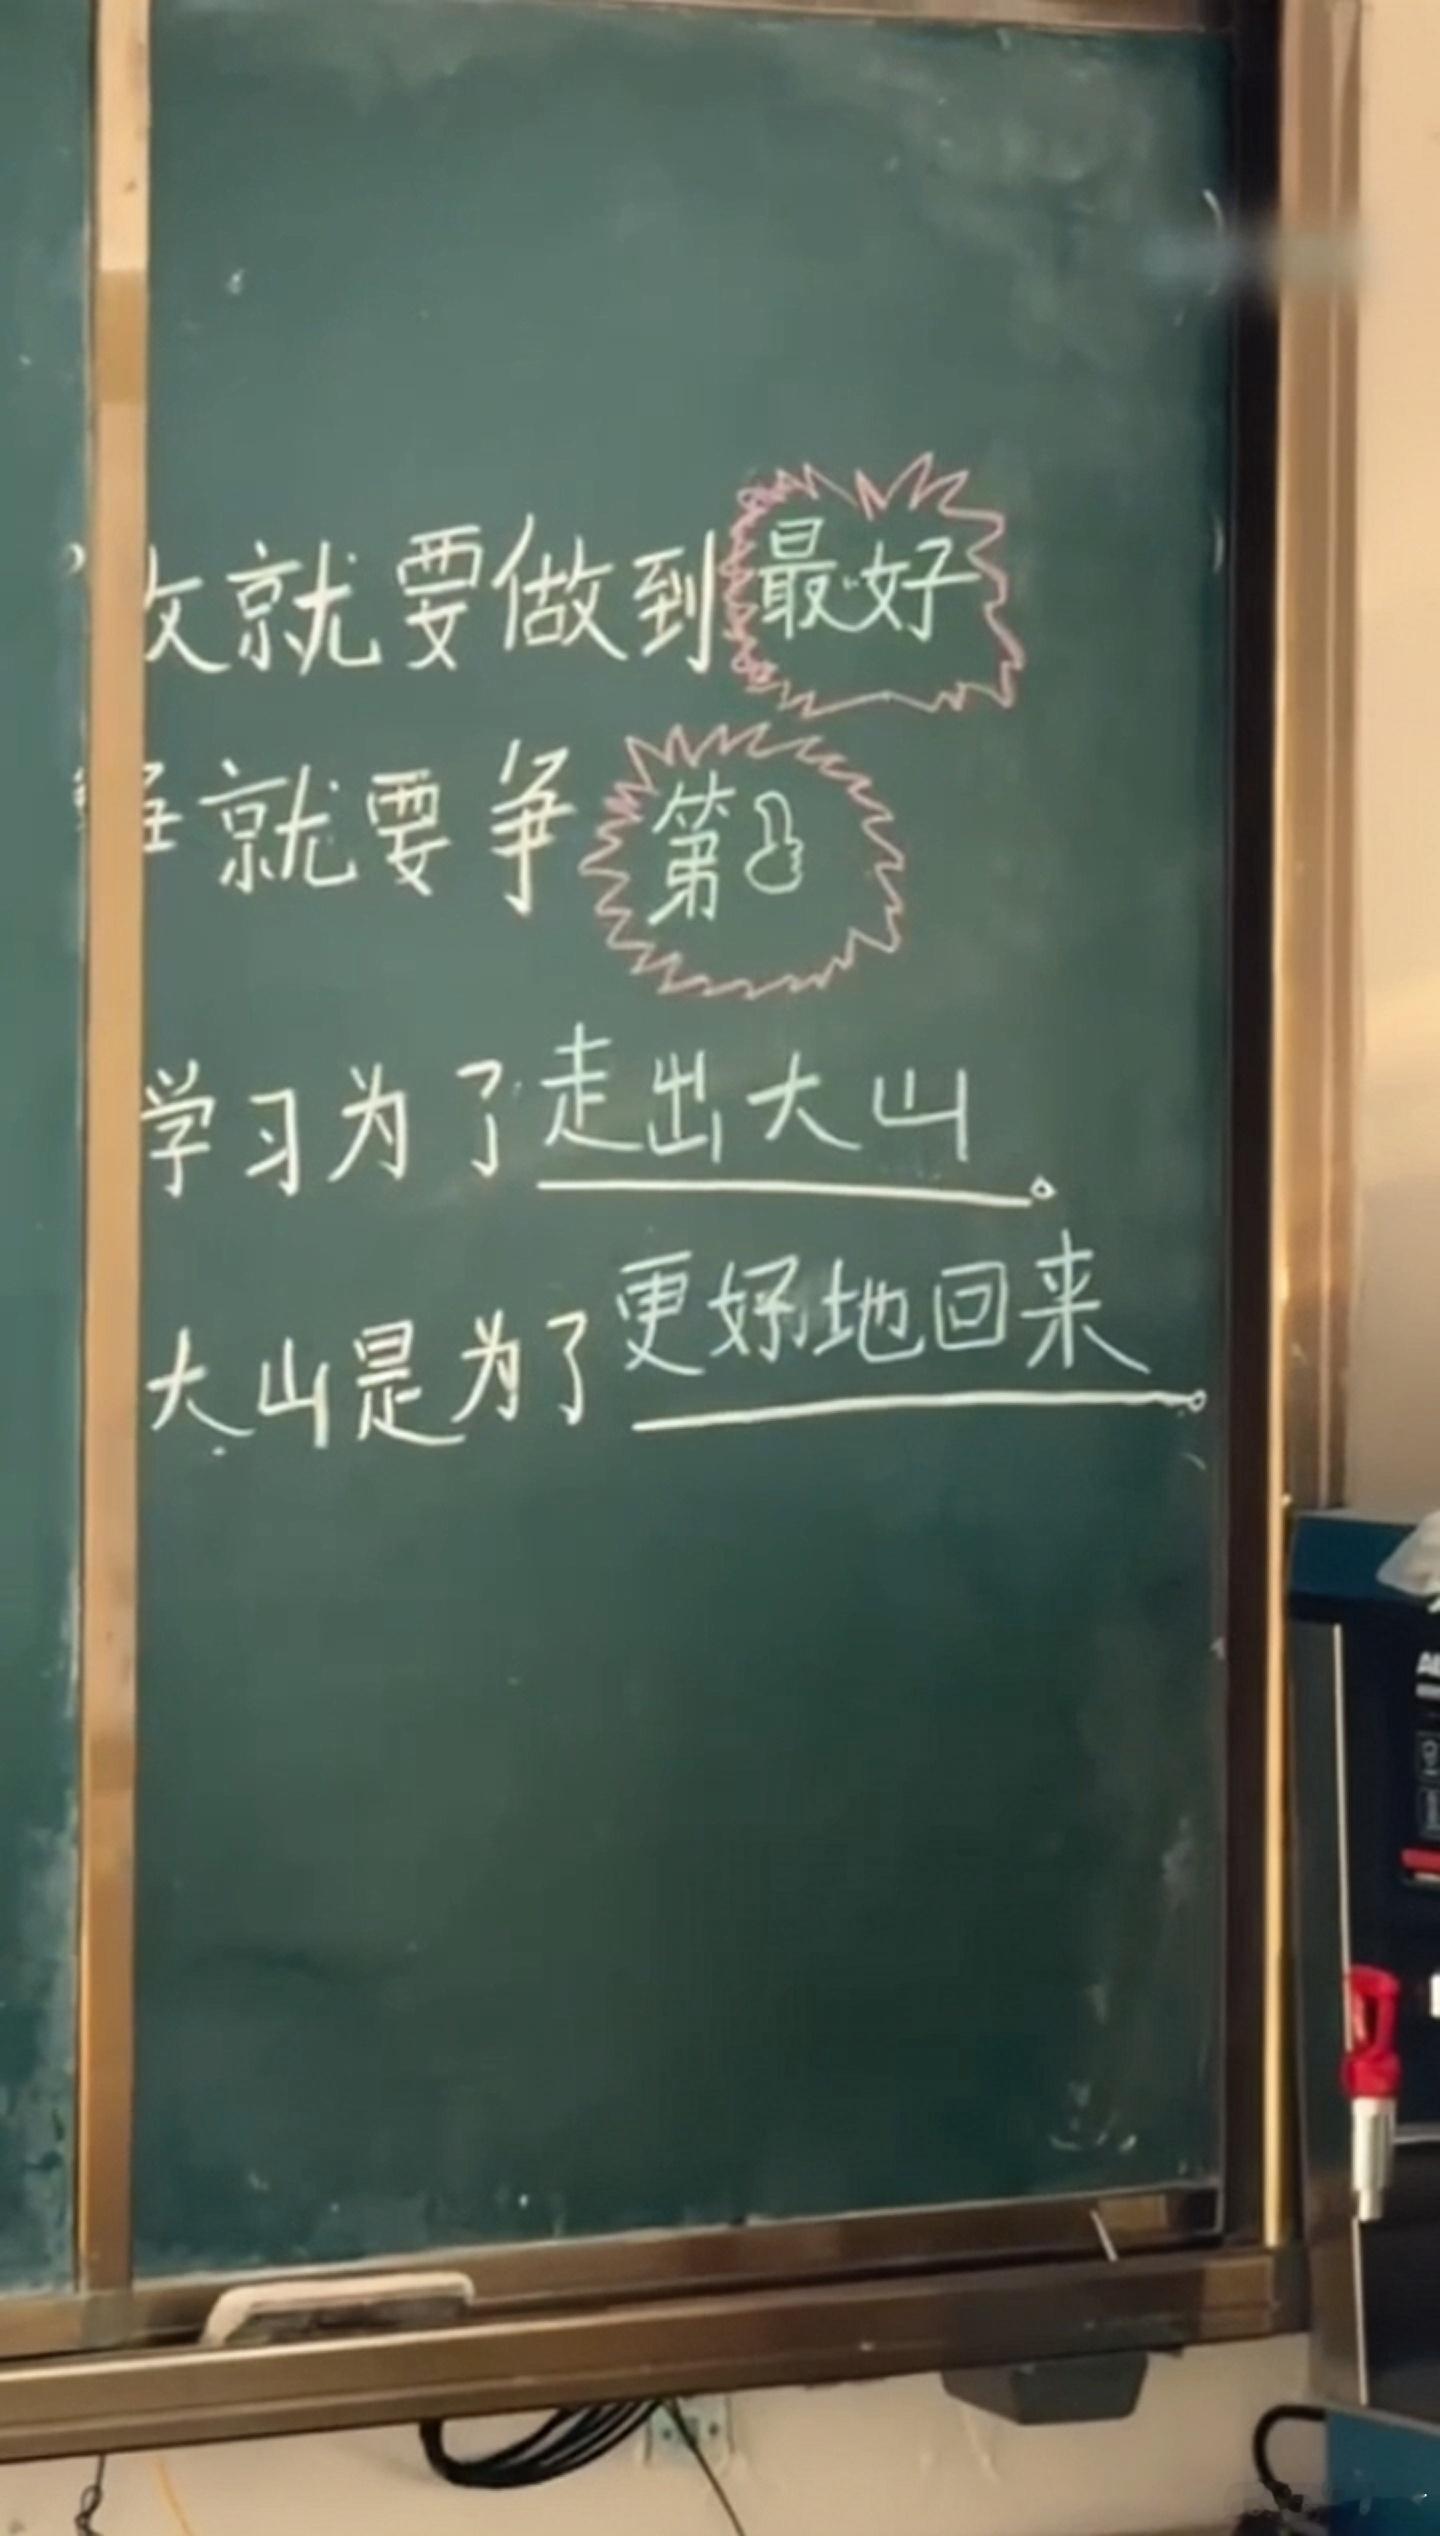 就要做到最好
就要争第
学习为了走出大山。
大山是为了更好地回来。